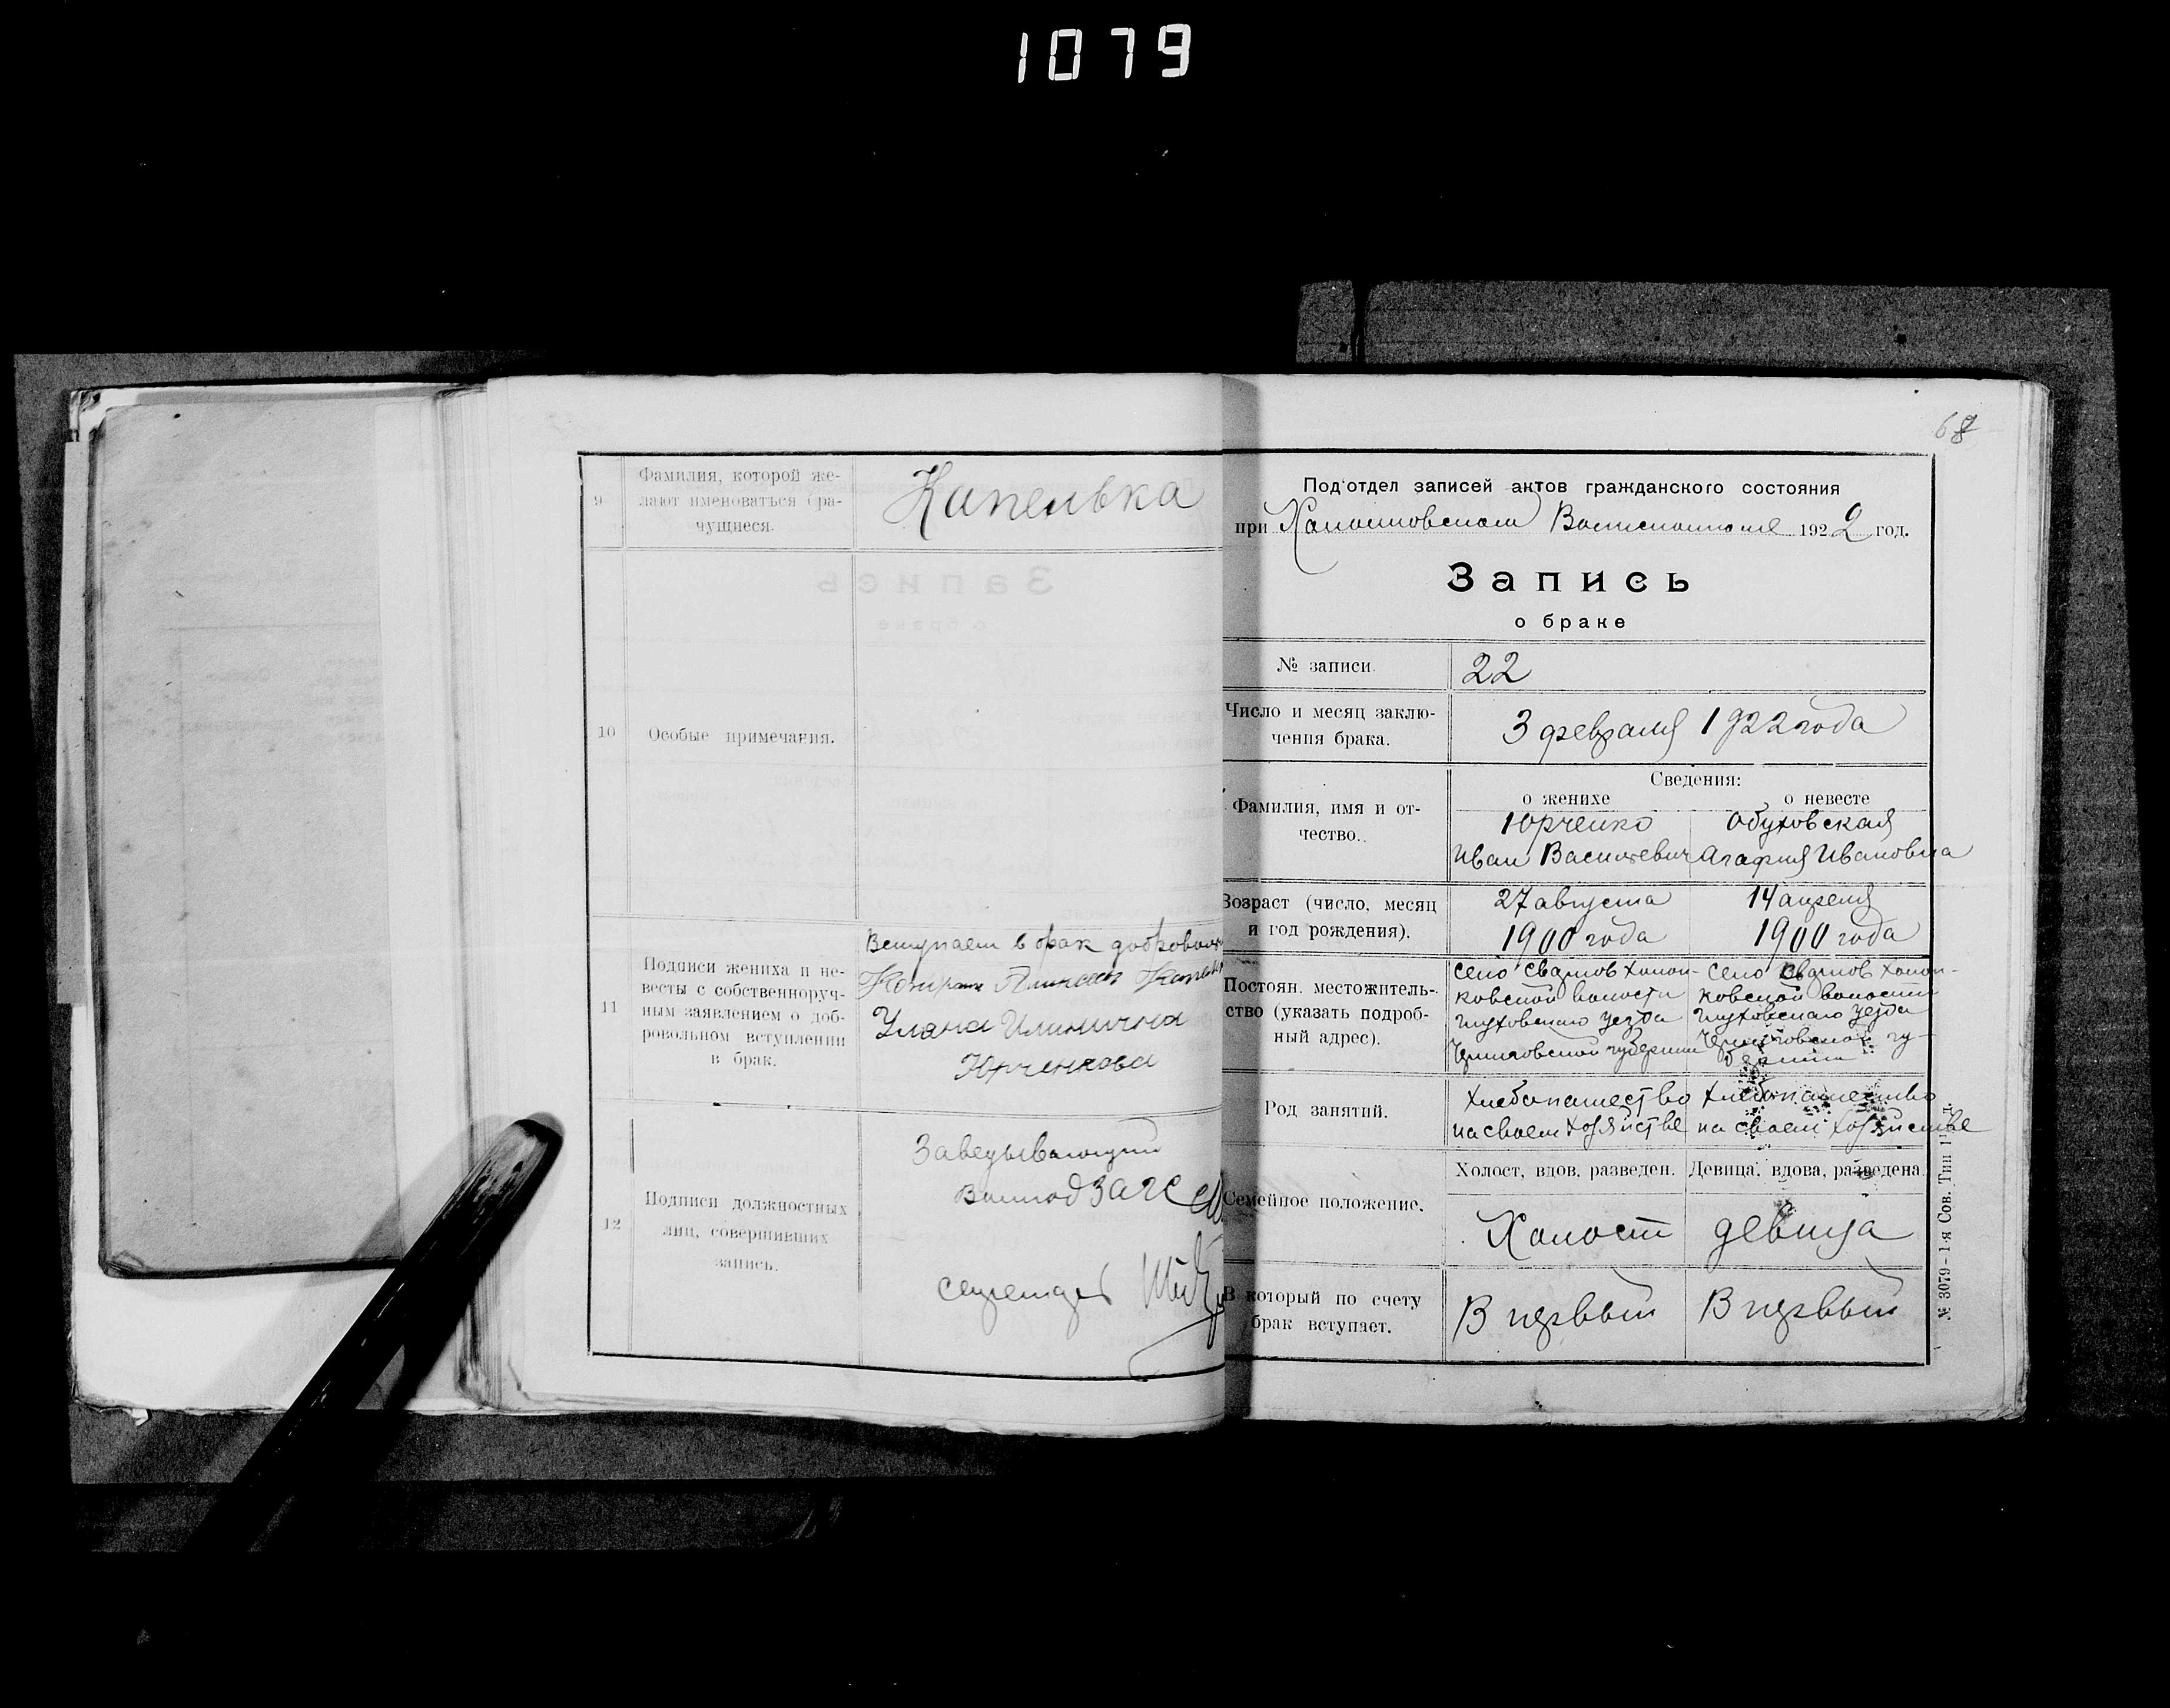 1079
9
Фамилия, которой же-
лают именоваться бра-
чущиеся.
Капелька
10
Особые примечания.
11
Подписи жениха и не-
весты с собственноруч-
ным заявлением о доб-
ровольном вступлении
в брак.
Вступаем в брак доброволь
Уляна Илинична
Юрченкова
12
Подписи должностных
лиц, совершивших
запись.
Заведывающий
ЗАГС
секретарь
68
Под'отдел записей актов гражданского состояния
при 1922 год.
Запись
о браке
№ записи.
22
Число и месяц заклю-
чения брака.
3 февраля 1922 года
Сведения:
о женихе
о невесте
Фамилия, имя и от-
чество.
Юрченко
Иван Васильевич
Обуховская
Агафия Ивановна
Возраст (число, месяц
и год рождения).
27 августа
1900 года
14 апреля
1900 года
Постоян. местожитель-
ство (указать подроб-
ный адрес).
село Сварков Холоп-
ковской волости
Глуховского уезда
Черниговской губернии
село Сварков Холоп-
ковской волости
Глуховского уезда
Черниговской гу-
бернии
Род занятий.
Хлебопашество
на своем хозяйстве
Хлебопашество
на своем хозяйстве
Семейное положение.
Холост, вдов, разведен.
Девица, вдова, разведена.
Холост
девица
В который по счету
брак вступает.
В первый
В первый
№ 3079–1-я Сов. Тип